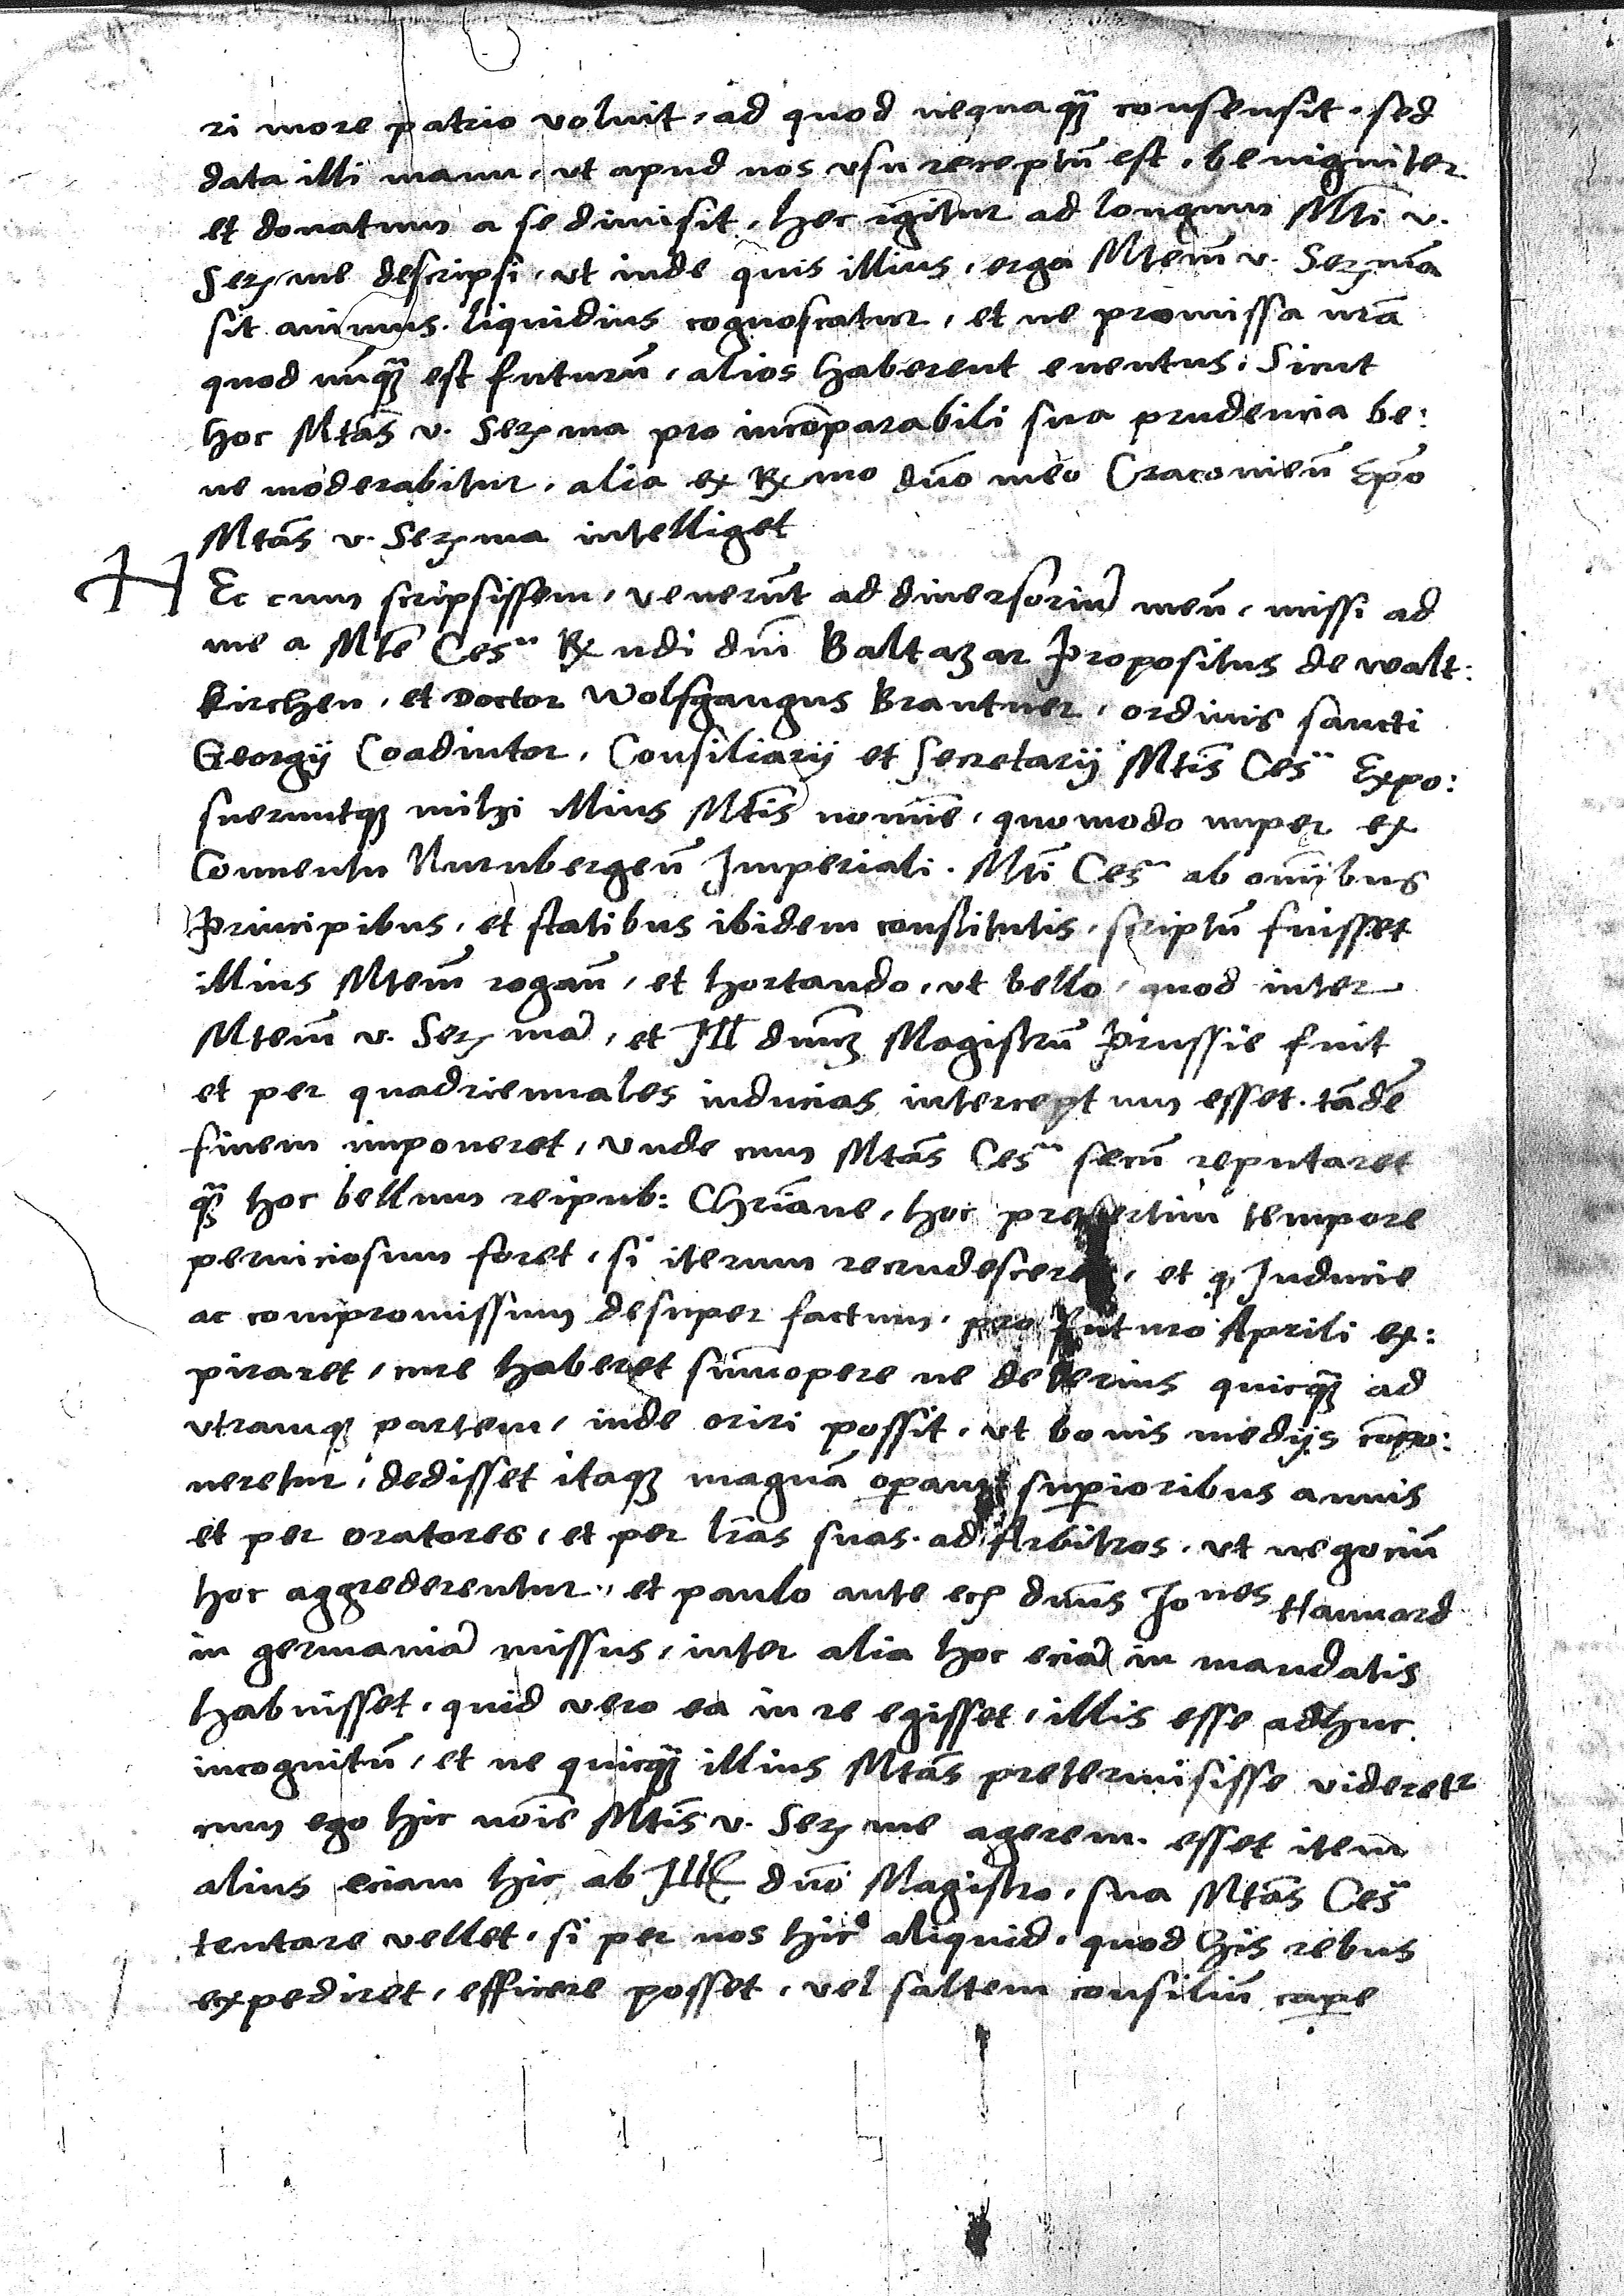 ri more patrio voluit, ad quod nequaqȝ consensit. sed
data illi manu, vt apud nos vsu receptū est, benigniter
et donatum a se dimisit, hec igitur ad longum Mti v.
Serme descripsi, vt inde quis illius, erga Mtem v. Serma
sit animus. liquidius cognoscatur, et ne promissa nrā
quod nūqȝ est futurū, alios haberent euentus, Sicut
hoc Mtas v. Serma pro incōparabili sua prudencia be:
ne moderabitur. alia ex Rmo dno meo Cracouien Epo
Mtas v. Serma intelliget
HEc cum scripsissem, venerūt ad diuersoriū meū, missi ad
me a Mte Ces Rndi dni Baltazar Propositus de walt:
kirchen, et Doctor Wolfgangus Brantner, ordinis sancti
Georgij Coadiutor, Consiliarij et Secretarij Mtis Ces Expo:
sueruntqȝ mihi illius Mtis nomīe, quomodo nuper ex
Conuentu Nurnbergen Imperiali. Mti Ces ab omībus
Principibus, et statibus ibidem constitutis, scriptū fuisset
illius Mtem rogan, et hortando, vt bello, quod inter
Mtem v. Sermā, et Ill dnūȝ Magistrū Prussie fuit
et per quadriennales inducias interceptum esset. tādē
finem imponeret, vnde cum Mtas Ces secū reputaret
qȝ hoc bellum reipub: Chriane, hoc presertim tempore
perniciosum foret, si iterum recrudesceret, et qȝ Inducie
ac compromissum desuper factum, pro futuro Aprili ex:
piraret, cure haberet sūmopere ne deterius quicqȝ ad
vtramqȝ partem, inde oriri possit, vt bonis medijs cōpo:
neretur, dedisset itaqȝ magnā operam superioribus annis
et per oratores, et per lras suas. ad Arbitros, vt negociū
hoc aggrederentur, et paulo ante ecȝ dnus Jones Hannard
in germaniā missus, inter alia hoc eciā in mandatis
habuisset, quid vero ea in re egisset, illis esse adhuc
incognitū, et ne quicqȝ illius Mtas pretermisisse videretr
cum ego hic noīe Mtis v. Serme agerem. esset item
alius eciam hic ab Ill dno Magistro, sua Mtas Ces
tentare vellet, si per nos hic aliquid, quod his rebus
expediret, efficere posset, vel saltem consiliū cape